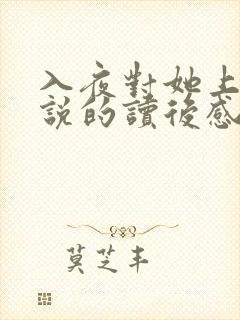 入夜對她上
說的讀後感
莫芝丰